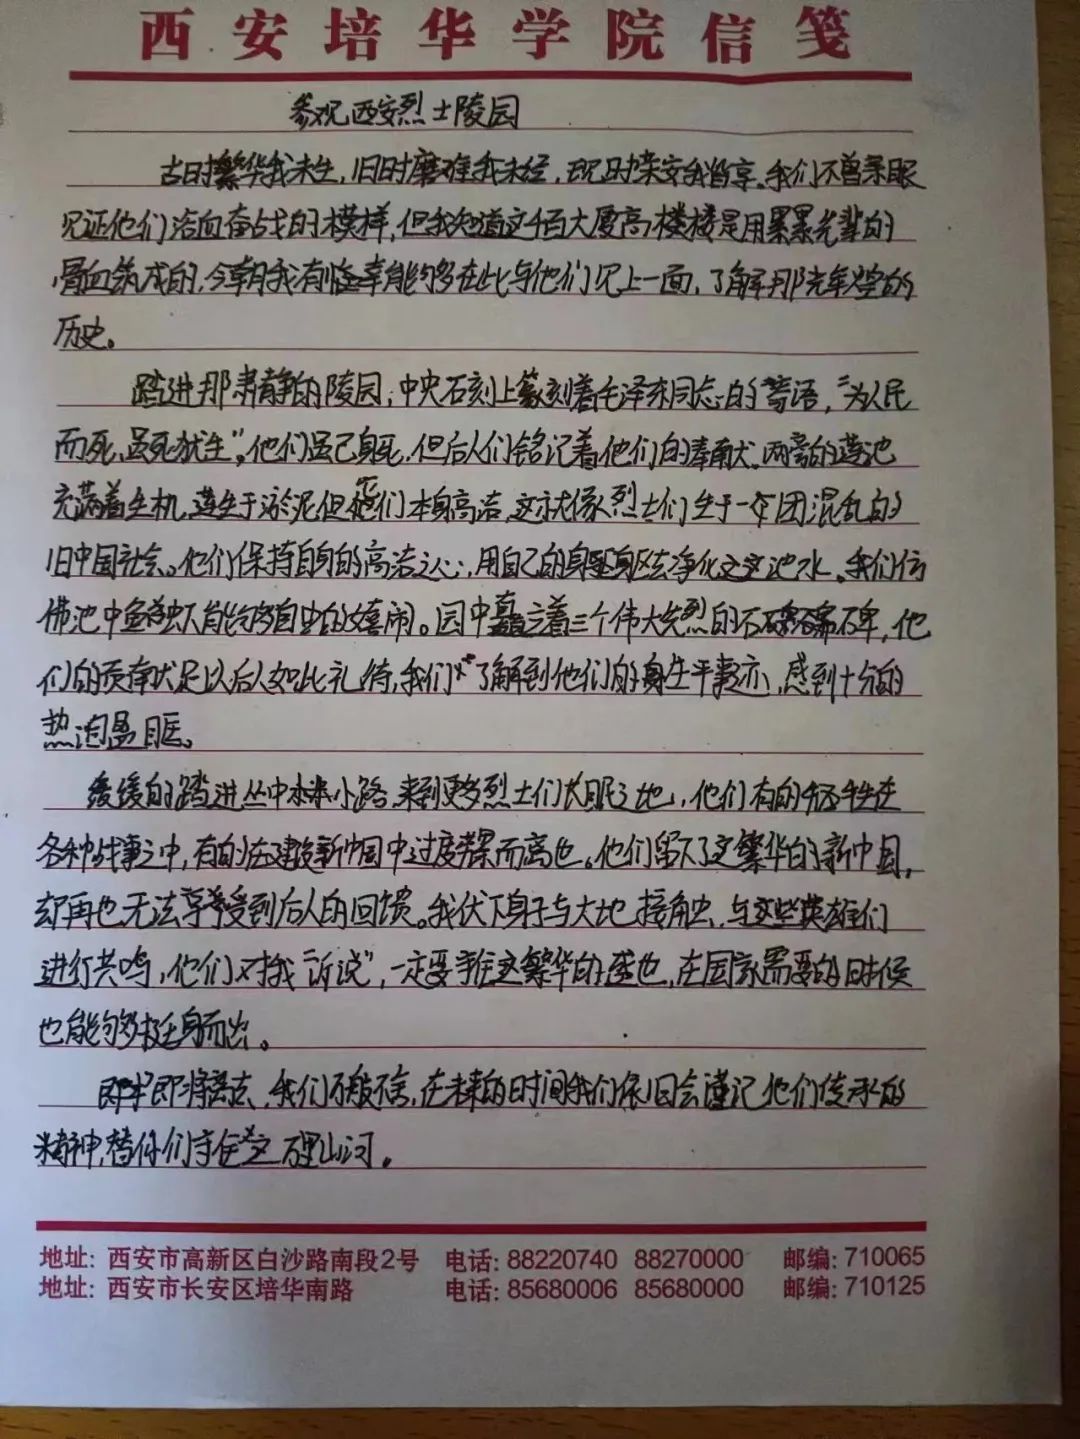 西安培华学院信笺
参观西安烈士陵园
古时繁华我未生，旧时磨难我未经，现时荣安我皆享。我们不曾亲眼
见证他们浴血奋战的模样，但我知道这千百大厦高楼楼是用累累先辈的
骨血筑成的，今朝我有幸能够在此与他们见上一面，了解那光辉的
历史。
踏进那肃静的陵园，中央石刻上篆刻着毛泽东同志的“寄语，“为人民
而死，虽死犹生”，他们虽已身死，但后人们铭记着他们的奉献。两旁的莲池
充满着生机，莲生于淤泥但他们本身高洁，这就像烈士们生于一团混乱的
旧中国社会。他们保持自身的高洁之心，用自己的身躯去净化这池水。我们仿
佛池中鱼虾能够自由的嬉闹。园中矗立着三个伟大先烈的石碑，他
们的贡献足以后人如此礼待，我们了解到他们的生平事迹，感到十分的
热泪盈眶。
缓缓的踏进丛中小路，来到更多烈士们长眠之地，他们有的牺牲在
各种战事之中，有的在建设新中国中过度劳累而离世。他们留下了这繁华的新中国，
却再也无法享受到后人的回馈。我伏下身子与大地接触，与这些英雄们
进行共鸣，他们对我“诉说”，一定要守住这繁华的盛世，在国家需要的时候
也能够挺身而出。
即将离去，我们不般不舍，在未来的时间我们依旧会谨记他们传承的
精神，替你们守住这万里山河。
地址：西安市高新区白沙路南段2号 电话：88220740 88270000 邮编：710065
地址：西安市长安区培华南路 电话：85680006 85680000 邮编：710125